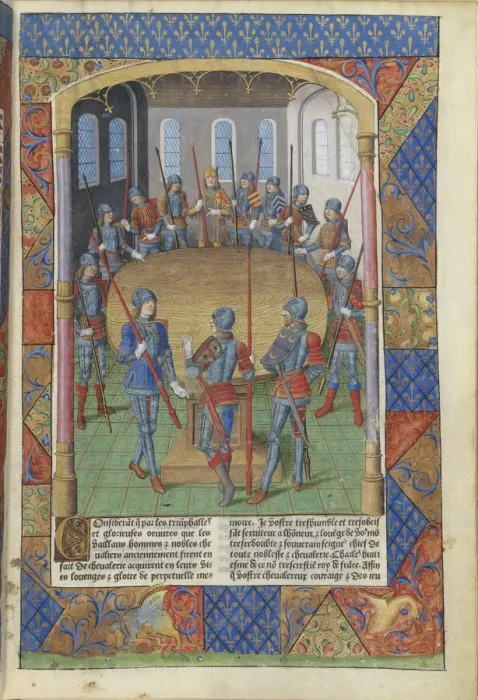 Consideràt q̃ par les triũphalles
et glorieuses oeuures que les
vaillans hommes ⁊ nobles che
ualiers anciennement firent en
fait de cheualerie acquirent en leurs vi
es louenges ⁊ gloire de perpetuelle me
moire. Je vostre treshumble et tresobeis
sãt seruiteur a lhõneur ⁊ louẽge de
tresredoubte ⁊ souuerain seigñr chief de
toute noblesse ⁊ cheualerie. Charles huiti
esme de ce nõ trescrestiẽ roy de frãce. Affin
q̃ vostre cheualereux couraige ⁊ Des ieu